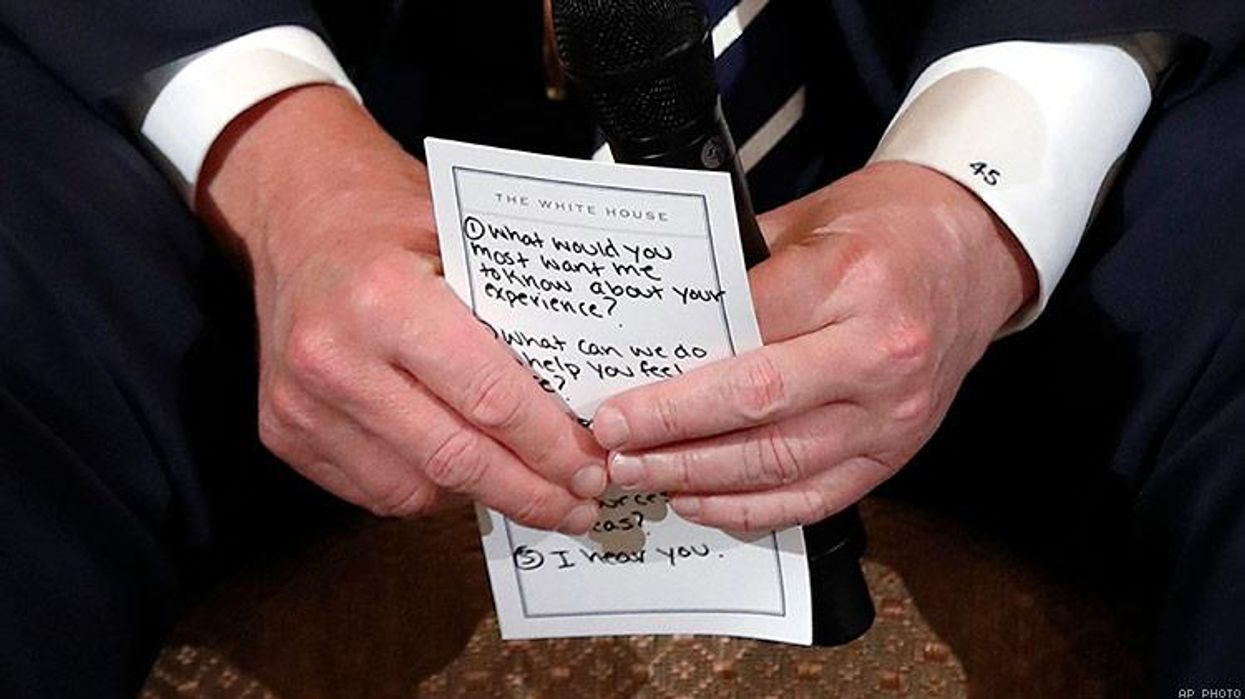 45
THE WHITE HOUSE
① What would you
most want me
to know about your
experience?
What can we do
help you feel
I hear you.
⑤ I hear you.
AP PHOTO